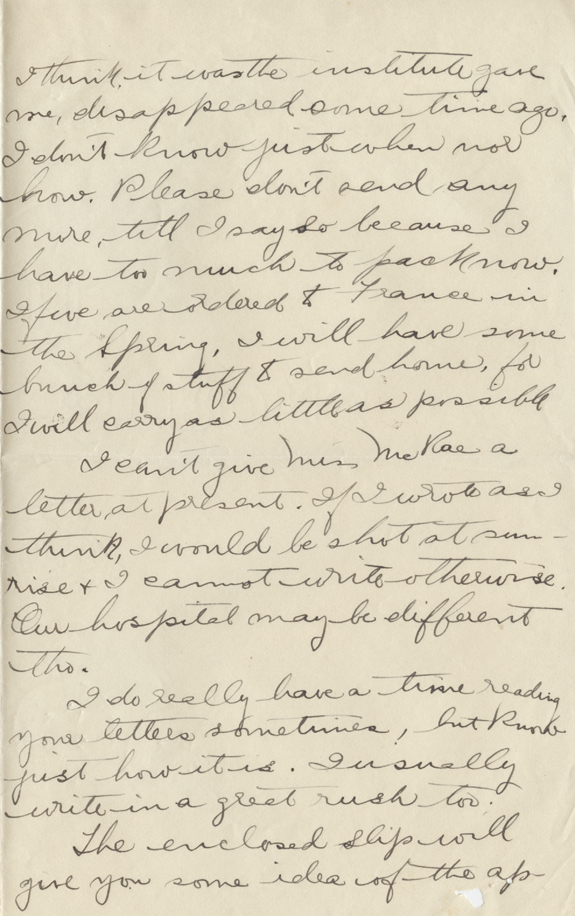 I think it was the institute gave
me, disappeared some time ago.
I don't know just when nor
how. Please don't send any
more, till I say so because I
have too much to pack now.
If we are ordered to France in
the Spring, I will have some
bunch of stuff to send home, for
I will carry as little as possible
I can't give Miss McRae a
letter at present. If I wrote as I
think, I would be shot at sun-
rise & I cannot write otherwise.
Our hospital may be different
tho.
I do really have a time reading
your letters sometimes, but know
just how it is. I usually
write in a great rush too.
The enclosed slip will
give you some idea of the ap-